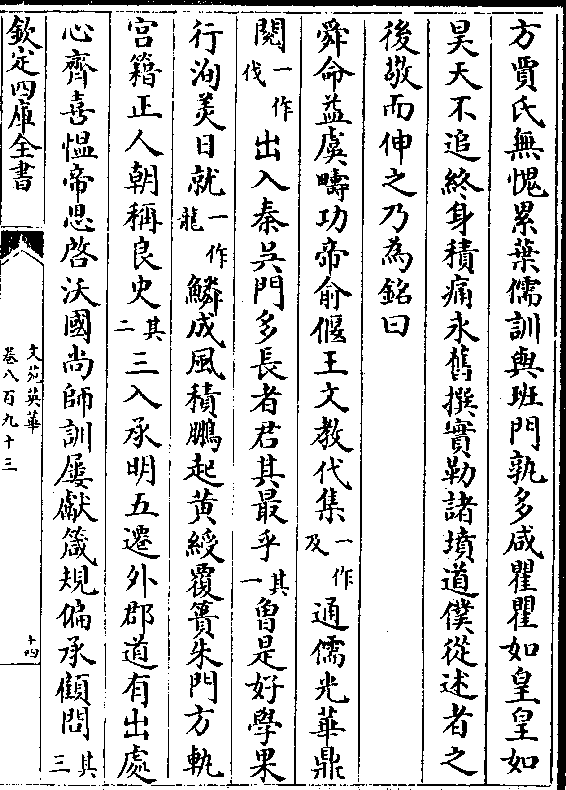 方賈氏無愧累葉儒訓與班門孰多咸瞿瞿如皇皇如
昊天不追終身積痛永舊撰實勒諸墳道僕從述者之
後敬而伸之乃為銘曰
舜命益虞疇功帝俞偃王文教代集一作及通儒光華鼎
閥一作伐出入秦吳門多長者君其最乎其一曾是好學果
行洵美日就一作龍鱗成風積鵬起黃綬覆簣朱門方軌
宫籍正人朝稱良史其二三入承明五遷外郡道有出處
心齊喜愠帝思啓沃國尚師訓屢獻箴規偏承顧問其三
欽定四庫全書
文苑英華
卷八百九十三
十四